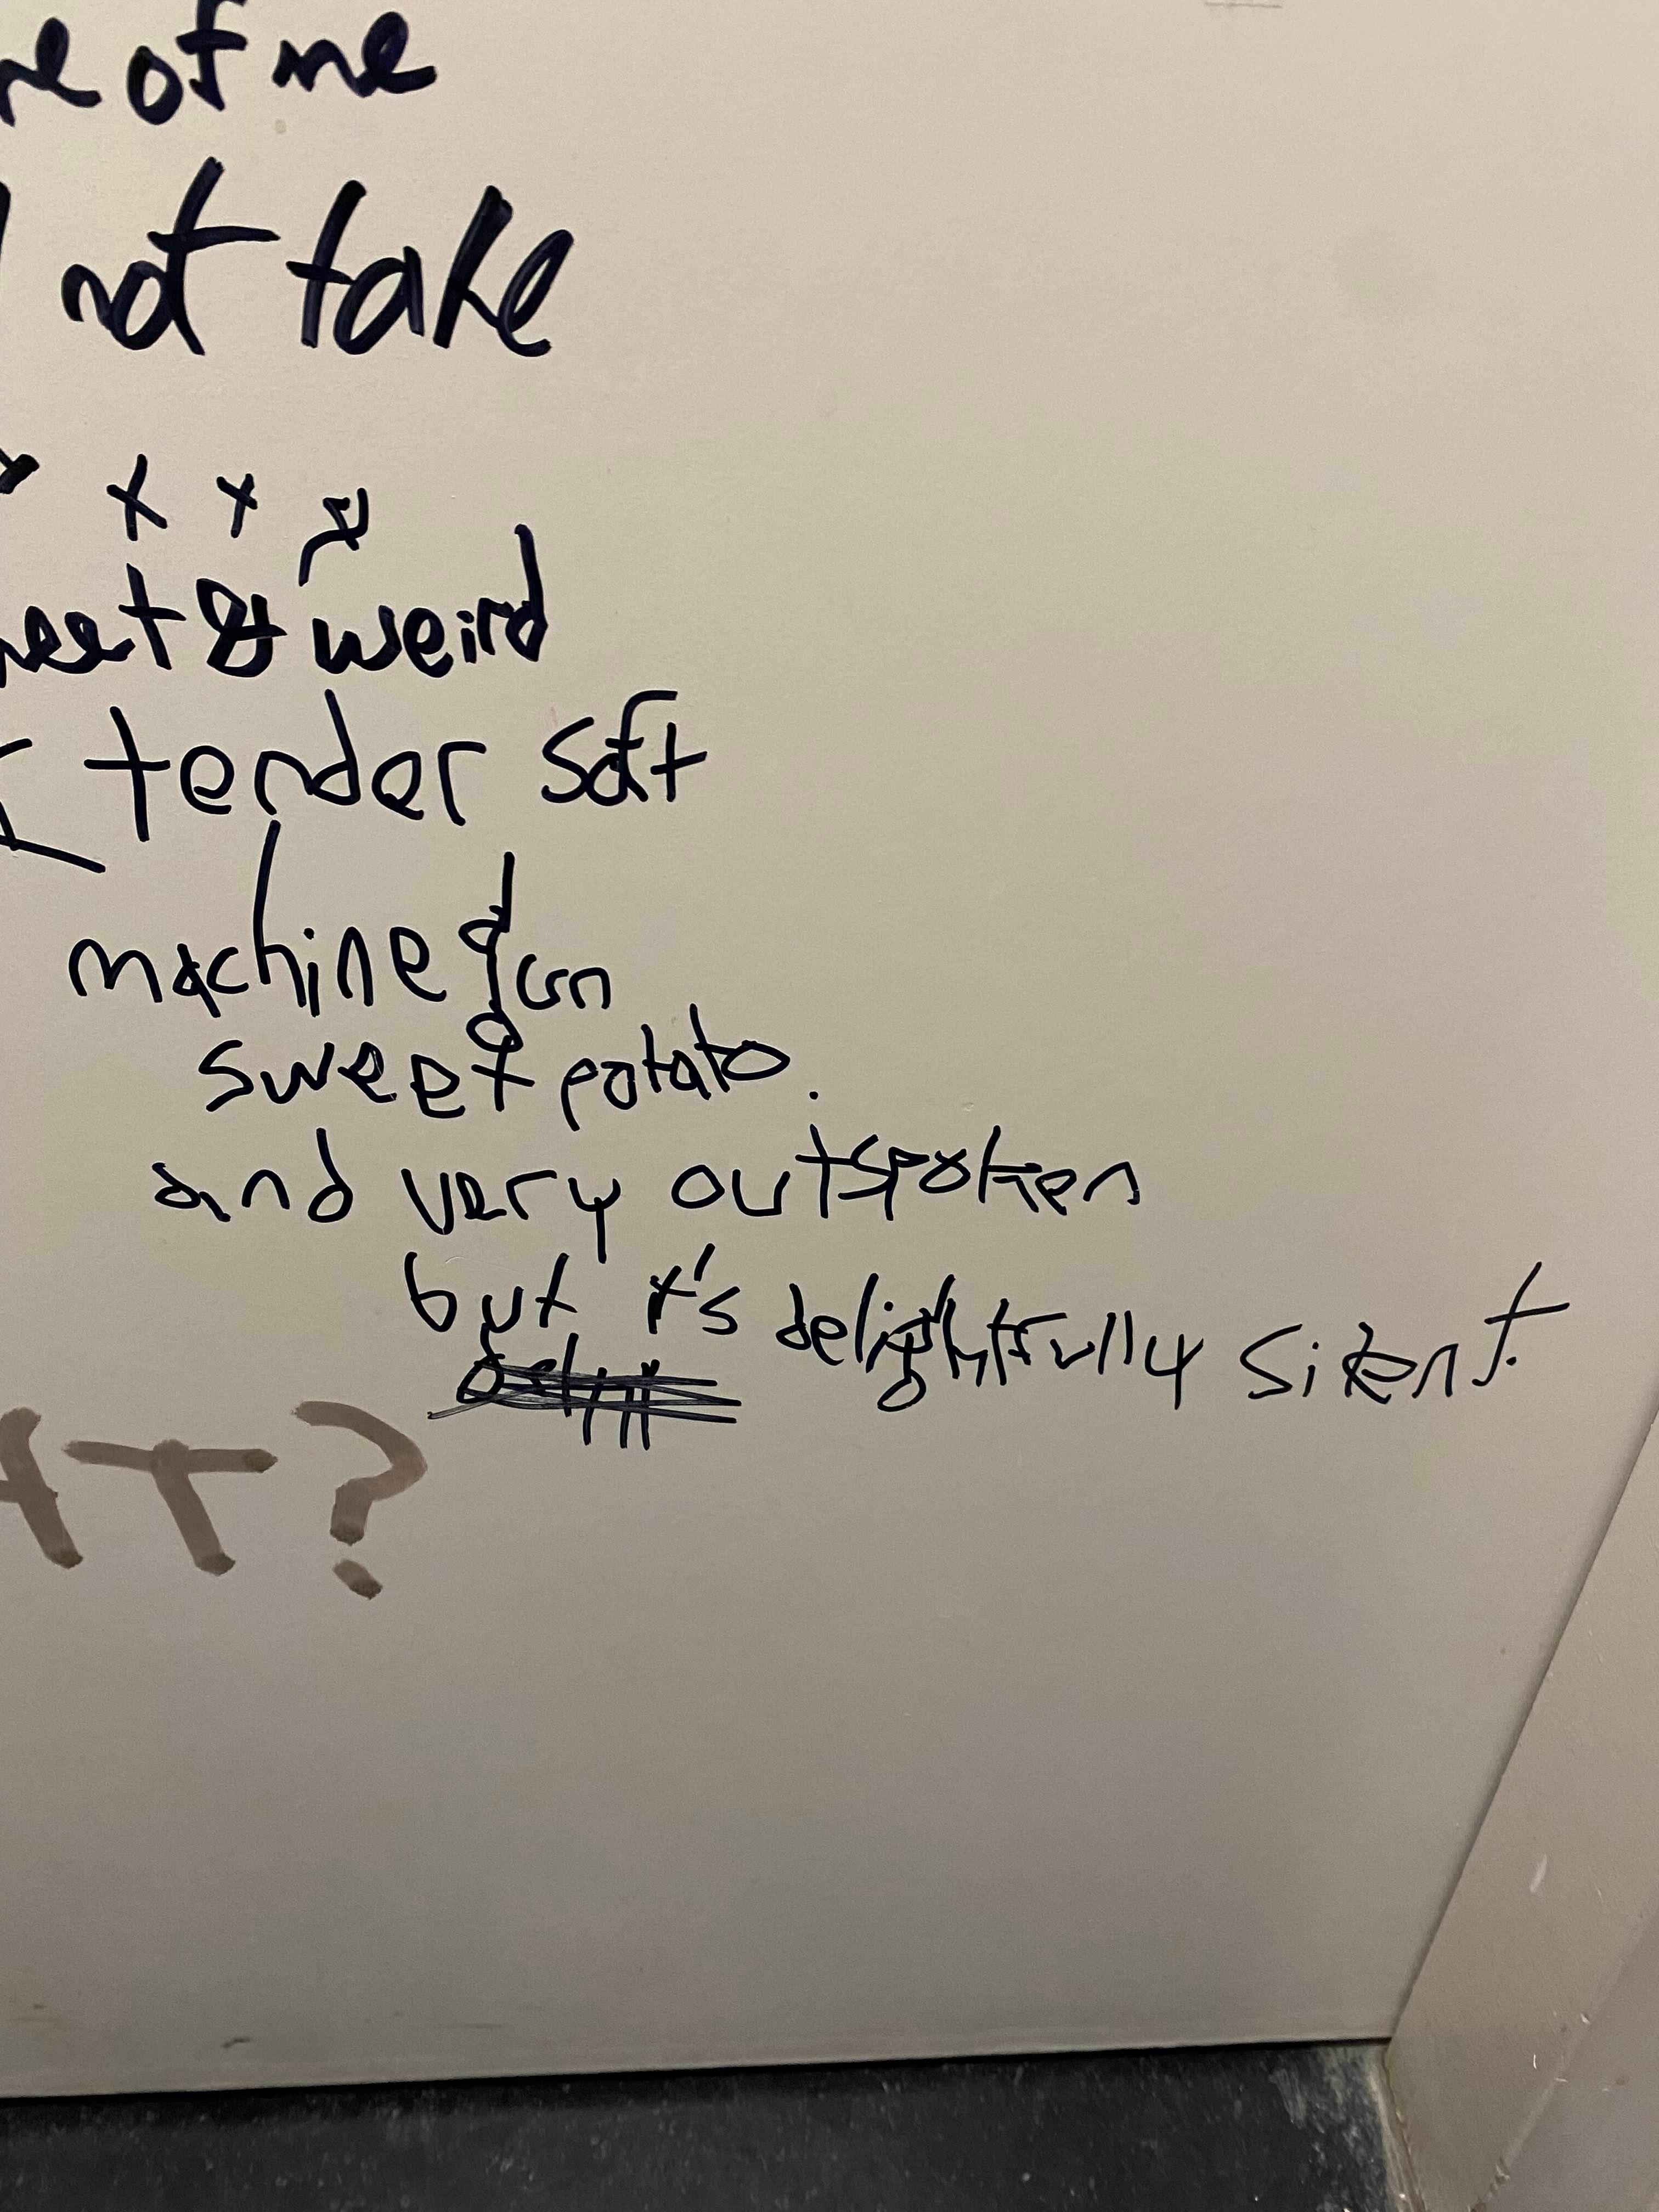 of me
not take
x x x
& weird
tender soft
machine gun
sweet potato.
and very outspoken
but it's delightfully silent.
?